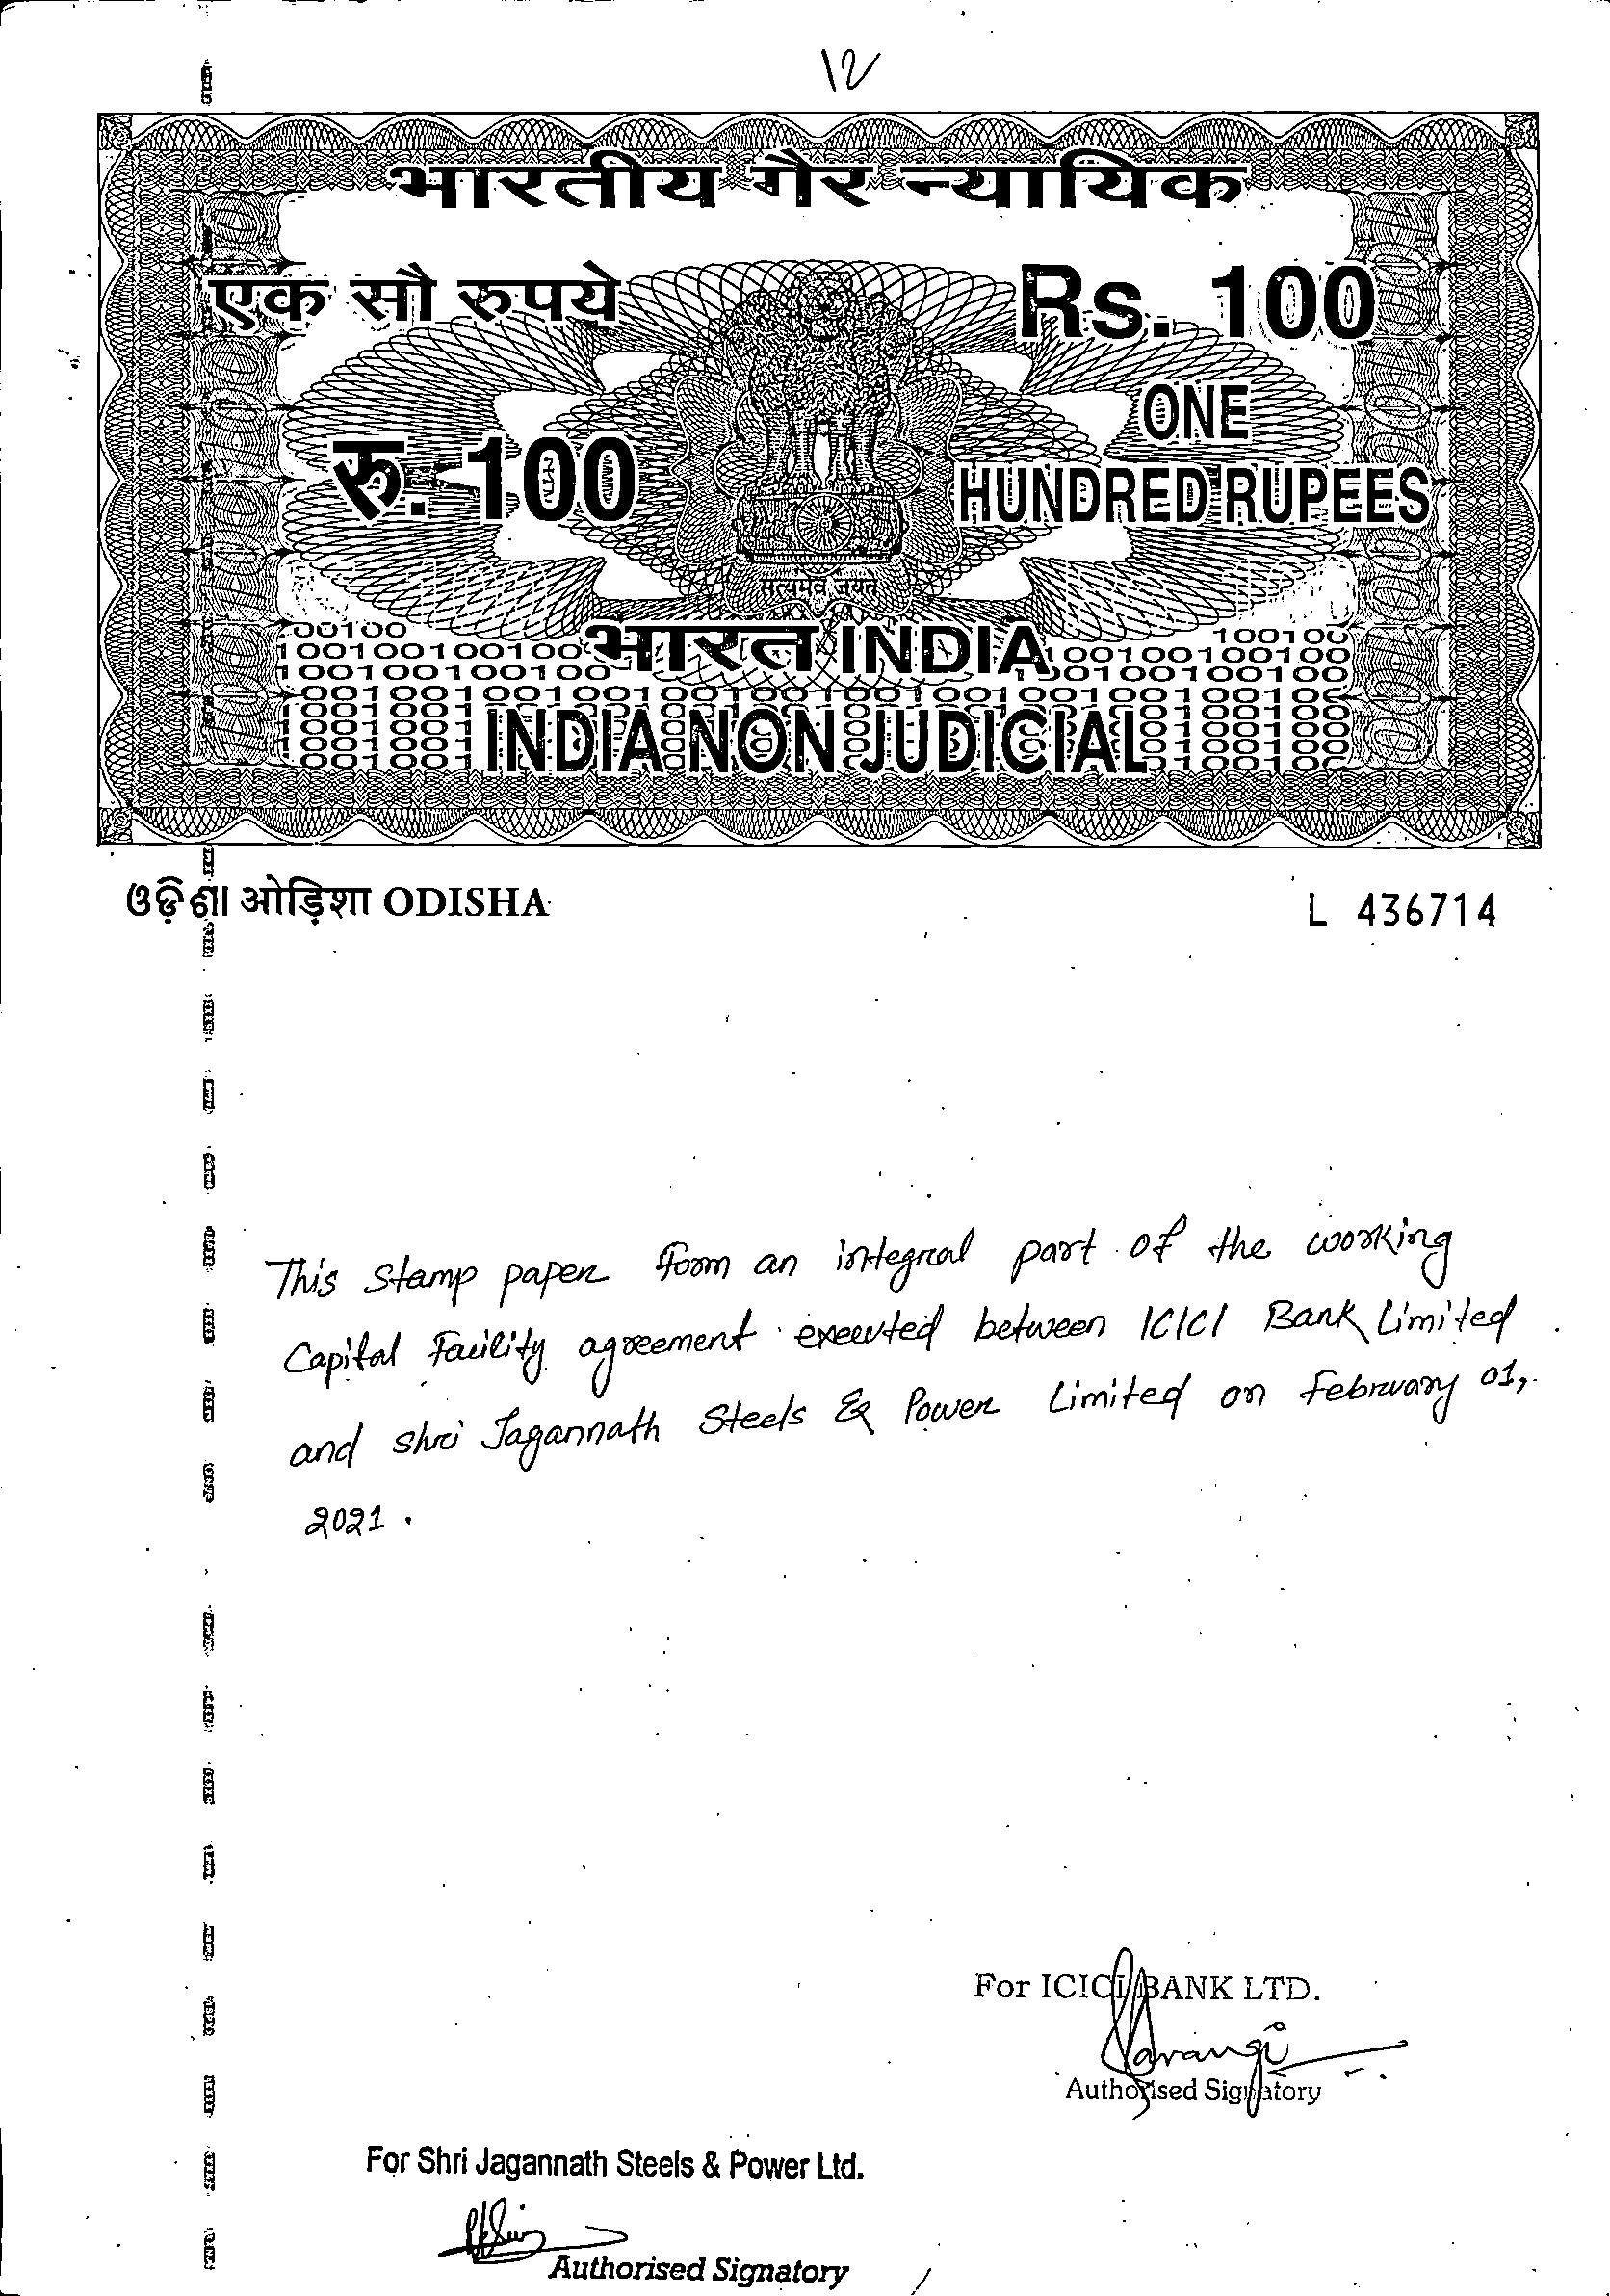 12
भारतीय गैर न्यायिक
एक सौ रुपये
Rs. 100
रु. 100
ONE
HUNDRED RUPEES
सत्यमेव जयते
भारत INDIA
INDIA NON JUDICIAL
ଓଡ଼ିଶା ओड़िशा ODISHA
L 436714
This stamp paper form an integral part of the working
Capital Facility agreement executed between ICICI Bank Limited
and Shri Jagannath Steels & Power Limited on February 01,
2021.
For ICICI BANK LTD.
Sarangi
Authorised Signatory
For Shri Jagannath Steels & Power Ltd.
Authorised Signatory